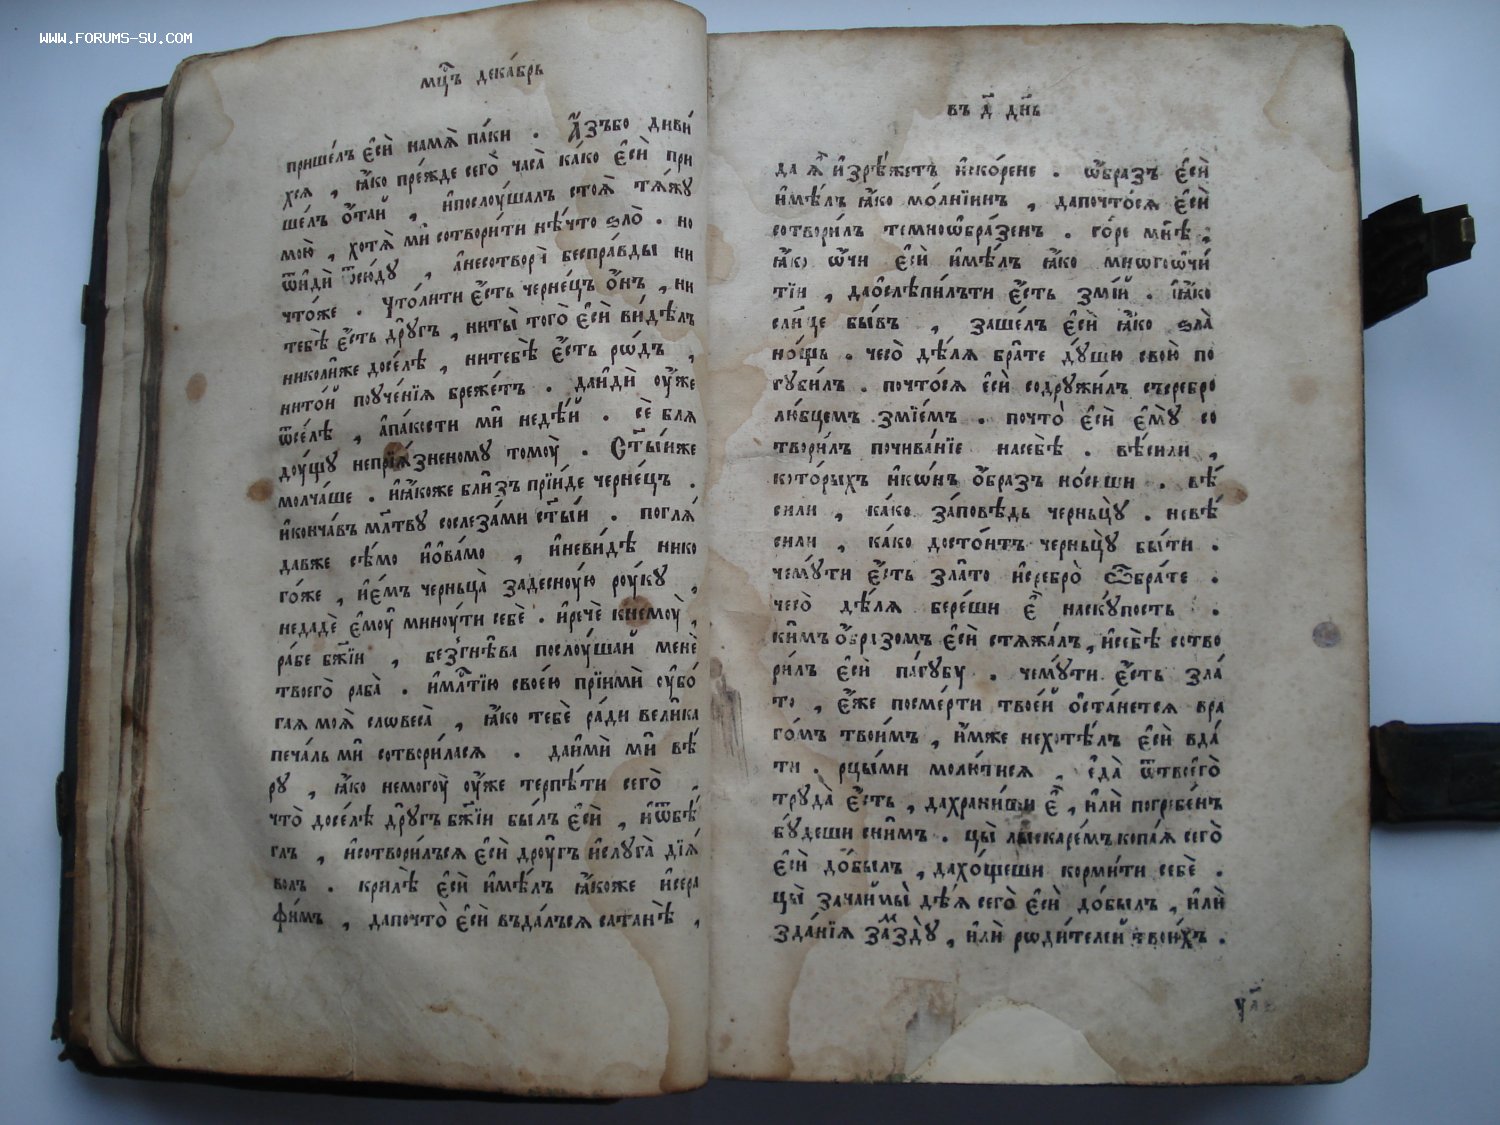 WWW.FORUMS-SU.COM
мц҃ъ дека́брь
прише́лъ є҆сѝ намѧ̀ па́ки . А҆́зъбо диви́
хсѧ , ꙗ҆́ко пре́жде сего̀ часа̀ ка́ко є҆сѝ при
ше́лъ ѻ҆тай , и҆послꙋ́шалъ стоѧ̀ тѧ́жу
мою̀ , хотѧ̀ мѝ сотвори́ти нѣ́что ѕло̀ . но
ѿидѝ ѿсю́дꙋ , а҆несотворѝ беспра́вды ни
что́же . Что́лити є҆́сть черне́цъ ѻ҆́нъ , ни
тебѣ̀ є҆́сть дрꙋ́гъ , ниты̀ того̀ є҆сѝ ви́дѣлъ
николи́же досе́лѣ , нитебѣ̀ є҆́сть рѡ́дъ ,
нито́й поꙋче́нїѧ бреже́тъ . даидѝ ᲂу҆́же
ѿсе́лѣ , а҆па́кости мѝ недѣ́й . сѐ блѧ
дꙋ́щꙋ непрїѧ́зненомꙋ томꙋ̀ . Ст҃ы́иже
молча́ше . и҆ꙗ҆́коже бли́зъ прїи́де черне́цъ .
и҆конча́въ мл҃твꙋ сослеза́ми ст҃ы́й . поглѧ́
давже сѣ́мо и҆ѻ҆ва́мо , и҆неви́дѣ нико
го́же , и҆є҆́мъ черньца̀ задеснꙋ́ю рꙋ́кꙋ ,
недадѐ є҆мꙋ̀ минꙋ́ти себѐ . и҆речѐ кнемꙋ̀ ,
ра́бе бж҃їи , безгнѣ́ва послꙋ́шай менѐ
твоего̀ раба̀ . и҆мл҃тїю свое́ю прїимѝ ᲂу҆бо́
гаѧ моѧ̀ словеса̀ , ꙗ҆́ко тебѐ ра́ди вели́ка
печа́ль мѝ сотвори́ласѧ . даимѝ мѝ вѣ́
рꙋ , ꙗ҆́ко немогꙋ̀ ᲂу҆́же терпѣ́ти сего̀ .
что̀ досе́лѣ дрꙋ́гъ бж҃їи бы́лъ є҆сѝ , и҆ѿбѣ́
глъ , и҆сотвори́лъсѧ є҆сѝ дрꙋ́гъ и҆слꙋга̀ дїѧ́
волъ . крилѣ̀ є҆сѝ и҆мѣ́лъ ꙗ҆́коже и҆сера
фи́мъ , дапочто̀ є҆сѝ въда́лъсѧ сатанѣ̀ ,
въ д҃ дн҃ь
да ѧ҆̀ и҆зрѣ́жетъ и҆ско́рене . ѻ҆́бразъ є҆сѝ
и҆мѣ́лъ ꙗ҆́ко мо́лнїинъ , дапочто́сѧ є҆сѝ
сотвори́лъ темноѡбра́зенъ . го́ре мнѣ̀ ,
ꙗ҆́ко ѡ҆́чи є҆сѝ и҆мѣ́лъ ꙗ҆́ко многоѡчи́
тїи , даѻ҆слѣпи́лъти є҆́сть змі́й . и҆ꙗ҆́ко
сл҃нце бы́въ , заше́лъ є҆сѝ ꙗ҆́ко ѕла̀
но́щь . чесо̀ дѣ́лѧ бра́те дꙋ́шю свою̀ по
гꙋби́лъ . почто́сѧ є҆сѝ содрꙋжи́лъ съсребро
лю́бцемъ змїе́мъ . почто̀ є҆сѝ є҆мꙋ̀ со
твори́лъ почива́нїе насебѣ̀ . вѣ́сили ,
кото́рыхъ и҆ко́нъ ѻ҆́бразъ но́сиши . вѣ́
сили , ка́ко за́повѣдь черньцꙋ̀ . невѣ́
сили , ка́ко досто́итъ черньцꙋ̀ бы́ти .
чемꙋ́ти є҆́сть зла́то и҆серебро̀ ѽбра́те .
чесо̀ дѣ́лѧ бере́ши є҆̀ наскꙋ́пость .
ки́мъ ѻ҆́бразомъ є҆сѝ стѧжа́лъ, и҆себѣ̀ сотво
ри́лъ є҆сѝ па́гꙋбꙋ . чемꙋ́ти є҆́сть зла́
то , є҆́же посме́рти твое́й ѻ҆ста́нетсѧ вра
го́мъ твои́мъ , и҆́мже нехотѣ́лъ є҆сѝ вда́
ти . рцы́ми молю́тисѧ , є҆да̀ ѿтвоего̀
трꙋда̀ є҆́сть , дахрани́ши є҆̀ , и҆лѝ погребе́нъ
бꙋ́деши сни́мъ . цы̀ лыскаре́мъ копа́ѧ сего̀
є҆сѝ до́былъ , дахо́щеши корми́ти себѐ .
цы̀ зача́имы̀ дѣ́ѧ сего̀ є҆сѝ до́былъ , и҆лѝ
зда́нїѧ за́здꙋ , и҆лѝ роди́телей твои́хъ .